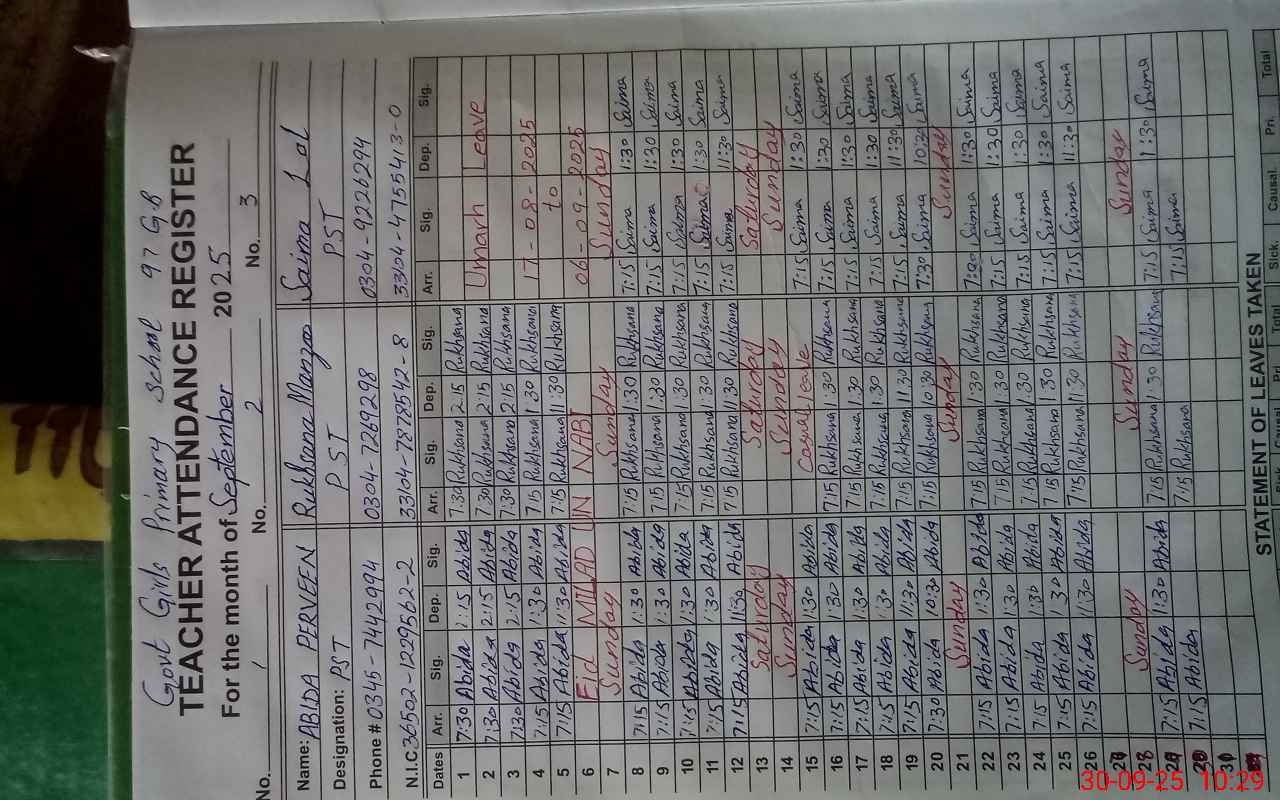 Govt Girls Primary School 97 GB
TEACHER ATTENDANCE REGISTER
For the month of September 2025
No. 1 No. 2 No. 3
Name: ABIDA PERVEEN Rukhsana Manzoor Saima Lal
Designation: PST PST PST
Phone # 0345-7442994 0304-7269298 0304-9226294
N.I.C. 36502-1229562-2 33104-7878542-8 33104-4755413-0
Dates Arr. Sig. Dep. Sig. Arr. Sig. Dep. Sig. Arr. Sig. Dep. Sig.
1 7:30 Abida 2:15 Abida 7:30 Rukhsana 2:15 Rukhsana
2 7:30 Abida 2:15 Abida 7:30 Rukhsana 2:15 Rukhsana Umarh Leave
3 7:30 Abida 2:15 Abida 7:30 Rukhsana 2:15 Rukhsana
4 7:15 Abida 1:30 Abida 7:15 Rukhsana 1:30 Rukhsana 17-08-2025
5 7:15 Abida 11:30 Abida 7:15 Rukhsana 11:30 Rukhsana to
6 Eid MILAD UN NABI 06-09-2025
7 Sunday Sunday Sunday
8 7:15 Abida 1:30 Abida 7:15 Rukhsana 1:30 Rukhsana 7:15 Saima 1:30 Saima
9 7:15 Abida 1:30 Abida 7:15 Rukhsana 1:30 Rukhsana 7:15 Saima 1:30 Saima
10 7:15 Abida 1:30 Abida 7:15 Rukhsana 1:30 Rukhsana 7:15 Saima 1:30 Saima
11 7:15 Abida 1:30 Abida 7:15 Rukhsana 1:30 Rukhsana 7:15 Saima 1:30 Saima
12 7:15 Abida 11:30 Abida 7:15 Rukhsana 11:30 Rukhsana 7:15 Saima 11:30 Saima
13 Saturday Saturday Saturday
14 Sunday Sunday Sunday
15 7:15 Abida 1:30 Abida Casual leave 7:15 Saima 1:30 Saima
16 7:15 Abida 1:30 Abida 7:15 Rukhsana 1:30 Rukhsana 7:15 Saima 1:30 Saima
17 7:15 Abida 1:30 Abida 7:15 Rukhsana 1:30 Rukhsana 7:15 Saima 1:30 Saima
18 7:15 Abida 1:30 Abida 7:15 Rukhsana 1:30 Rukhsana 7:15 Saima 1:30 Saima
19 7:15 Abida 11:30 Abida 7:15 Rukhsana 11:30 Rukhsana 7:15 Saima 11:30 Saima
20 7:30 Abida 10:30 Abida 7:20 Rukhsana 10:30 Rukhsana 7:30 Saima 10:30 Saima
21 Sunday Sunday Sunday
22 7:15 Abida 1:30 Abida 7:15 Rukhsana 1:30 Rukhsana 7:20 Saima 1:30 Saima
23 7:15 Abida 1:30 Abida 7:15 Rukhsana 1:30 Rukhsana 7:15 Saima 1:30 Saima
24 7:15 Abida 1:30 Abida 7:15 Rukhsana 1:30 Rukhsana 7:15 Saima 1:30 Saima
25 7:15 Abida 1:30 Abida 7:15 Rukhsana 1:30 Rukhsana 7:15 Saima 1:30 Saima
26 7:15 Abida 11:30 Abida 7:15 Rukhsana 11:30 Rukhsana 7:15 Saima 11:30 Saima
28 Sunday Sunday Sunday
29 7:15 Abida 11:30 Abida 7:15 Rukhsana 1:30 Rukhsana 7:15 Saima 1:30 Saima
30 7:15 Abida 7:15 Rukhsana 7:15 Saima
STATEMENT OF LEAVES TAKEN
Sick. Casual. Pri. Total
30-09-25 10:29